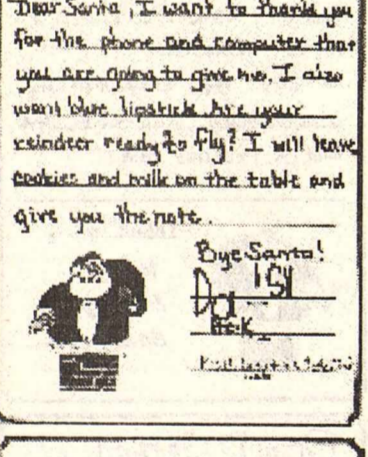 Dear Santa, I want to thank you
for the phone and computer that
you are going to give me. I also
want blue lipstick Are your
reindeer ready to fly? I will leave
cookies and milk on the table and
give you the note.
Bye Santa!